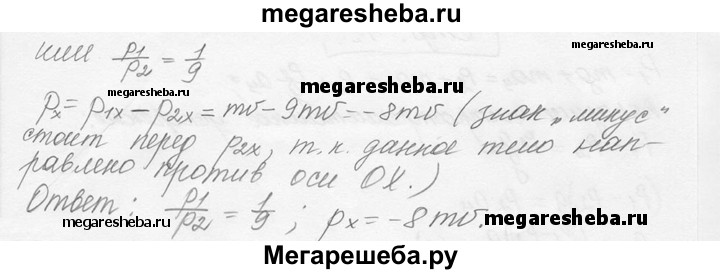 megaresheba.ru
или p1/p2 = 1/9
megaresheba.ru
megaresheba.ru
Px = p1x - p2x = mv - 9mv = -8mv (знак „минус“
стоит перед p2x, т.к. данное тело нап-
равлено против оси OX.)
Ответ: p1/p2 = 1/9; px = -8mv.
megaresheba.ru
megaresheba.ru
Мегарешеба.ру